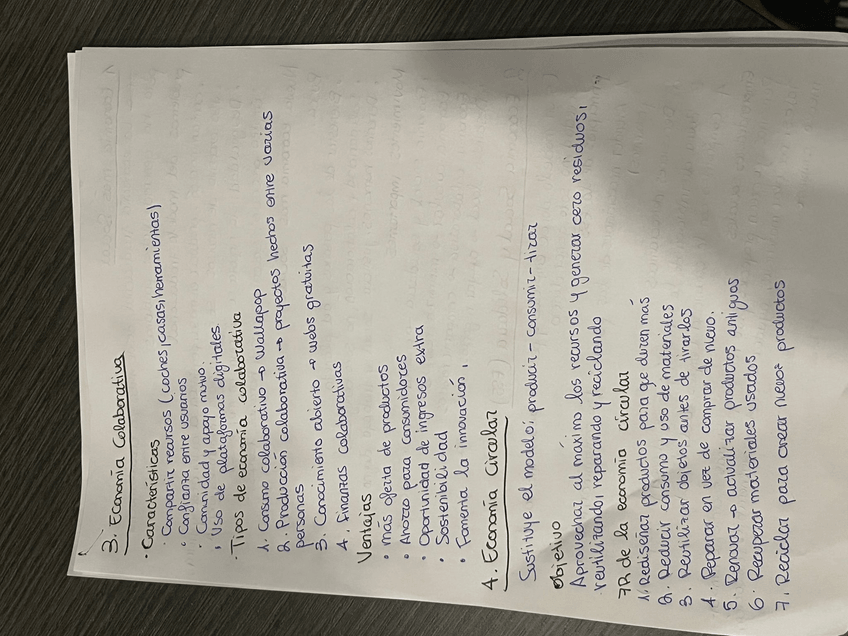 3. Economía Colaborativa
· Características
· Compartir recursos (coches, casas, herramientas)
· Confianza entre usuarios
· Comunidad y apoyo mutuo.
· Uso de plataformas digitales
· Tipos de economía colaborativa
1. Consumo colaborativo → Wallapop
2. Producción colaborativa → proyectos hechos entre varias
personas
3. Conocimiento abierto → webs gratuitas
4. Finanzas colaborativas
Ventajas
• más oferta de productos
• Ahorro para consumidores
• Oportunidad de ingresos extra
• Sostenibilidad
• Fomenta la innovación.
4. Economía Circular
Sustituye el modelo: producir-consumir-tirar
Objetivo
Aprovechar al máximo los recursos y generar cero residuos,
reutilizando, reparando y reciclando
7R de la economía circular
1. Rediseñar productos para qe duren más
2. Reducir consumo y uso de materiales
3. Reutilizar objetos antes de tirarlos
4. Reparar en vez de comprar de nuevo.
5. Renovar → actualizar productos antiguos
6. Recuperar materiales usados
7. Reciclar para crear nuevos productos